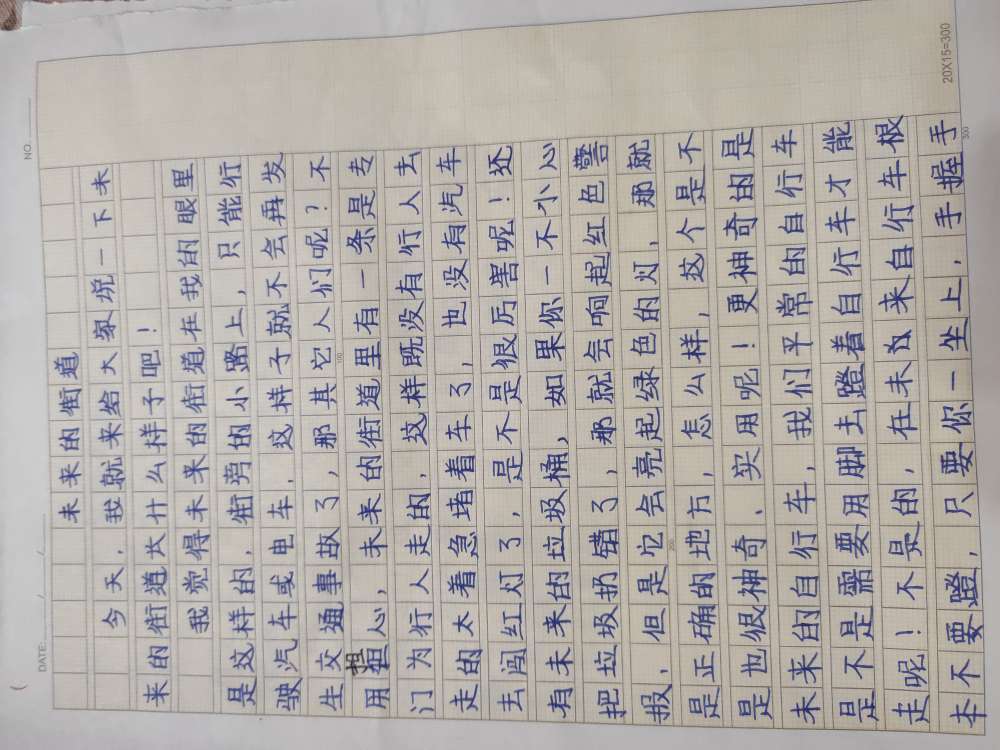 NO.
DATE: / /
未来的街道
今天,我就来给大家说一下未
来的街道长什么样子吧!
我觉得未来的街道在我的眼里
是这样的,街旁的小路上,只能行
驶汽车或电车,这样子就不会再发
生交通事故了,那其它人们呢?不
用担心,未来的街道里有一条是专
门为行人走的,这样既没有行人去
走的太着急堵着车了,也没有汽车
去闯红灯了,是不是很厉害呢!还
有未来的垃圾桶,如果你一不小心
把垃圾扔错了,那就会响起红色警
报,但是它会亮起绿色的灯,那就
是正确的地方,怎么样,这个是不
是也很神奇、实用呢!更神奇的是
未来的自行车,我们平常的自行车
是不是需要用脚去蹬着自行车才能
走呢!不是的,在未来自行车根
本不要蹬,只要你一坐上,手握手
100
200
300
20X15=300